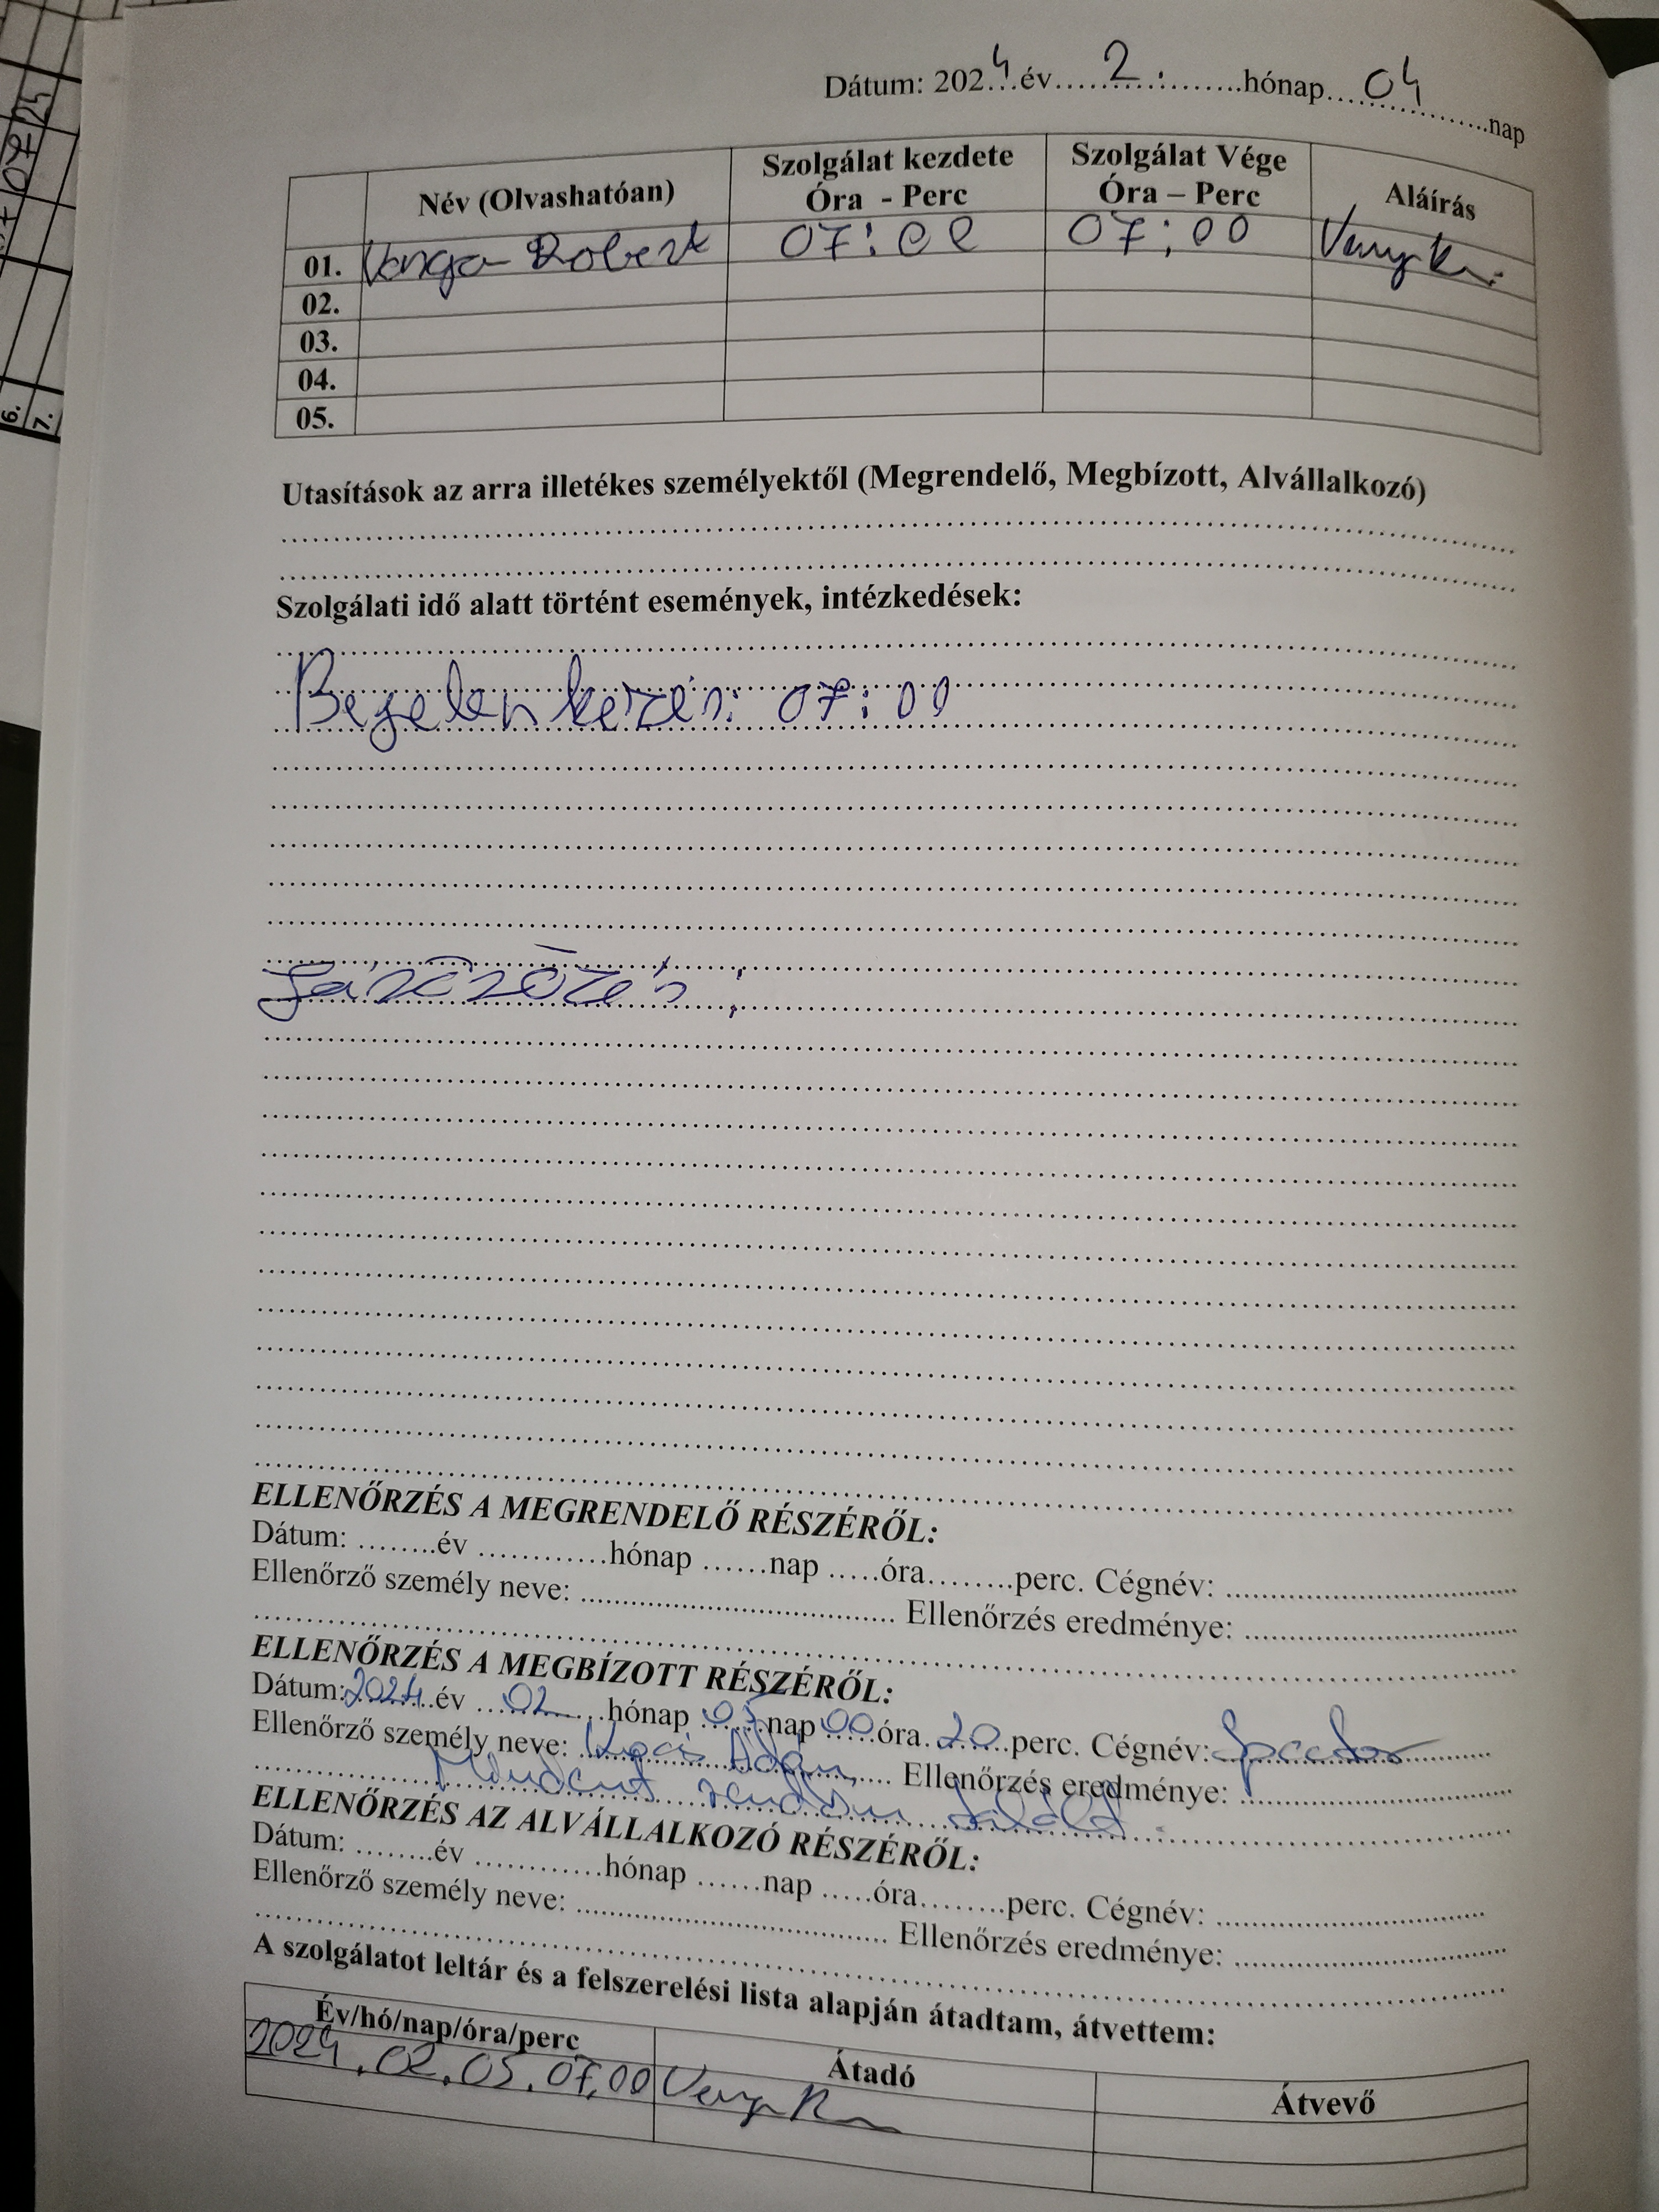 Dátum: 2024 év 2. hónap 04 nap
Név (Olvashatóan) Szolgálat kezdete Óra - Perc Szolgálat Vége Óra – Perc Aláírás
01. Varga Robert 07:00 07:00
02.
03.
04.
05.
Utasítások az arra illetékes személyektől (Megrendelő, Megbízott, Alvállalkozó)
Szolgálati idő alatt történt események, intézkedések:
Bejelenkezés: 07:00
ELLENŐRZÉS A MEGRENDELŐ RÉSZÉRŐL:
Dátum: ........év ............hónap ......nap .....óra........perc. Cégnév: ..............................
Ellenőrző személy neve: ........................................ Ellenőrzés eredménye: ..............................
ELLENŐRZÉS A MEGBÍZOTT RÉSZÉRŐL:
Dátum: 2024 év 02 hónap 05 nap 00 óra 20 perc. Cégnév:
Ellenőrző személy neve: Ádám Ellenőrzés eredménye:
Mindent rendben
ELLENŐRZÉS AZ ALVÁLLALKOZÓ RÉSZÉRŐL:
Dátum: ........év ............hónap ......nap .....óra........perc. Cégnév: ..............................
Ellenőrző személy neve: ........................................ Ellenőrzés eredménye: ..............................
A szolgálatot leltár és a felszerelési lista alapján átadtam, átvettem:
Év/hó/nap/óra/perc Átadó Átvevő
2024.02.05.07.00
6.
7.